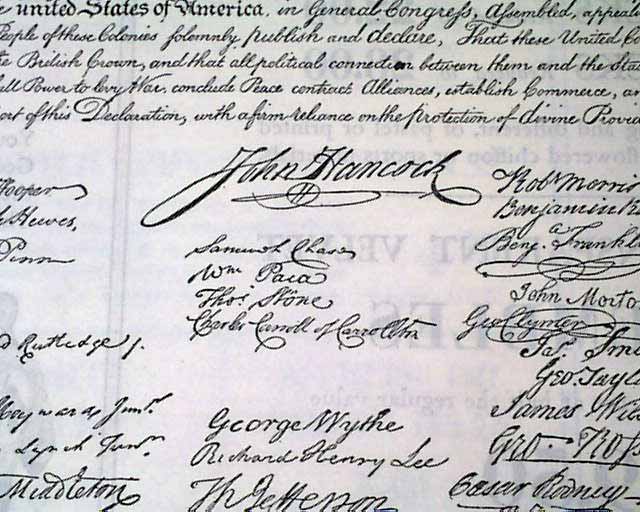 united States of America, in General Congress, Assembled, appeal
People of these Colonies solemnly publish and declare, That these United Co
the British Crown, and that all political connection between them and the Sta
full Power to levy War, conclude Peace contract Alliances, establish Commerce, an
ort of this Declaration, with a firm reliance on the protection of divine Provid
John Hancock
Hooper
Hewes,
Penn
d Rutledge J.
Heyward Junr.
Lynch Junr.
Middleton
Samuel Chase
Wm. Paca
Thos. Stone
Charles Carroll of Carrollton
George Wythe
Richard Henry Lee
Th Jefferson
Robt Morris
Benjamin R
Benja. Frankli
John Morto
Geo Clymer
Jas. Smi
Geo. Tayl
James Wil
Geo. Ross
Caesar Rodney